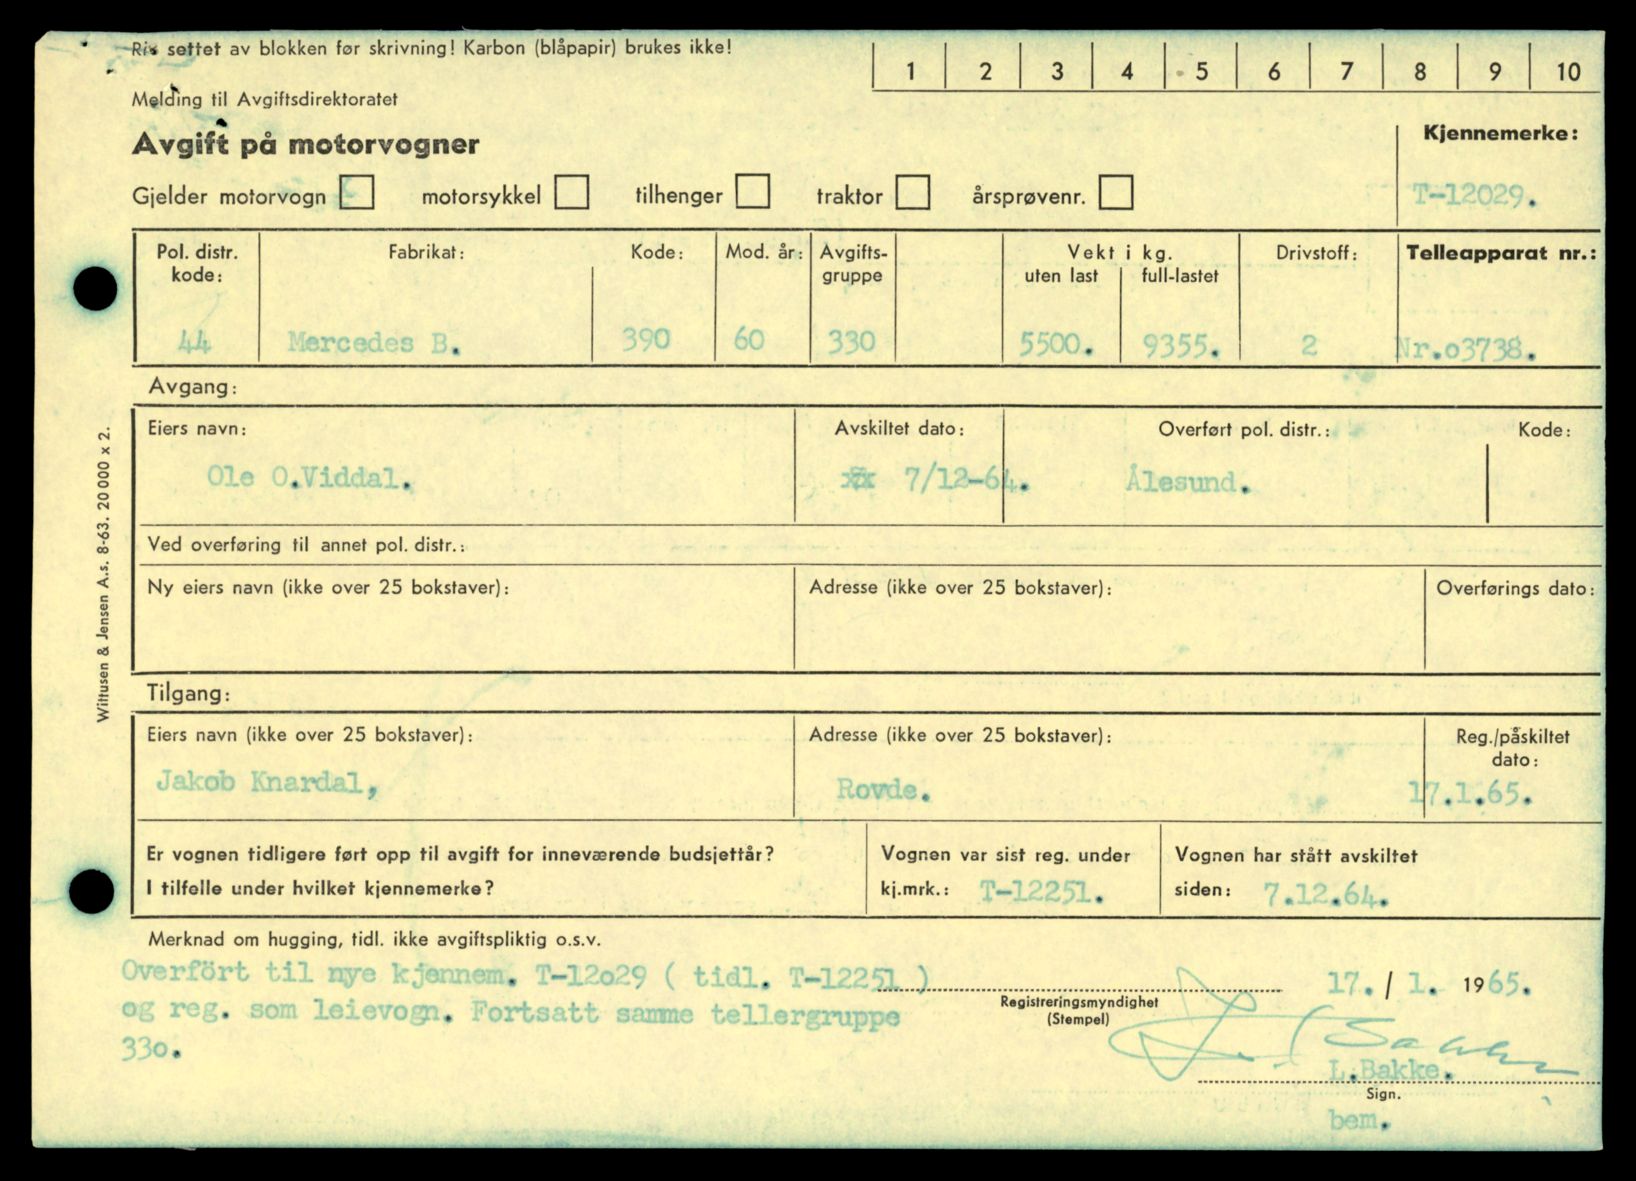 Riv settet av blokken før skrivning! Karbon (blåpapir) brukes ikke!
1 2 3 4 5 6 7 8 9 10
Melding til Avgiftsdirektoratet
Avgift på motorvogner
Kjennemerke:
Gjelder motorvogn motorsykkel tilhenger traktor årsprøvenr.
T-12029.
Pol. distr. kode: Fabrikat: Kode: Mod. år: Avgifts-gruppe Vekt i kg. uten last full-lastet Drivstoff: Telleapparat nr.:
44 Mercedes B. 390 60 330 5500. 9355. 2 Nr.o3738.
Avgang:
Eiers navn: Avskiltet dato: Overført pol. distr.: Kode:
Ole O.Viddal. 7/12-64. Ålesund.
Ved overføring til annet pol. distr.:
Ny eiers navn (ikke over 25 bokstaver): Adresse (ikke over 25 bokstaver): Overførings dato:
Tilgang:
Eiers navn (ikke over 25 bokstaver): Adresse (ikke over 25 bokstaver): Reg./påskiltet dato:
Jakob Knardal, Rovde. 17.1.65.
Er vognen tidligere ført opp til avgift for inneværende budsjettår? Vognen var sist reg. under Vognen har stått avskiltet
I tilfelle under hvilket kjennemerke? kj.mrk.: T-12251. siden: 7.12.64.
Merknad om hugging, tidl. ikke avgiftspliktig o.s.v.
Overfört til nye kjennem. T-12o29 ( tidl. T-12251 )
og reg. som leievogn. Fortsatt samme tellergruppe
33o.
17. / 1. 1965.
Registreringsmyndighet
(Stempel)
Bakke
L.Bakke.
Sign.
bem.
Wittusen & Jensen A.s. 8-63. 20 000 x 2.